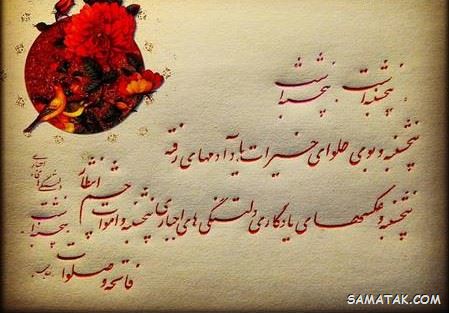 پنجشنبه است پنجشنبه است
پنجشنبه و بوی حلوای خیرات یاد آدمهای رفته
پنجشنبه و عکسهای یادگاری دلتنگی های اجباری
پنجشنبه و اموات چشم انتظار
فاتحه و صلوات
پنجشنبه است
SAMATAK.COM